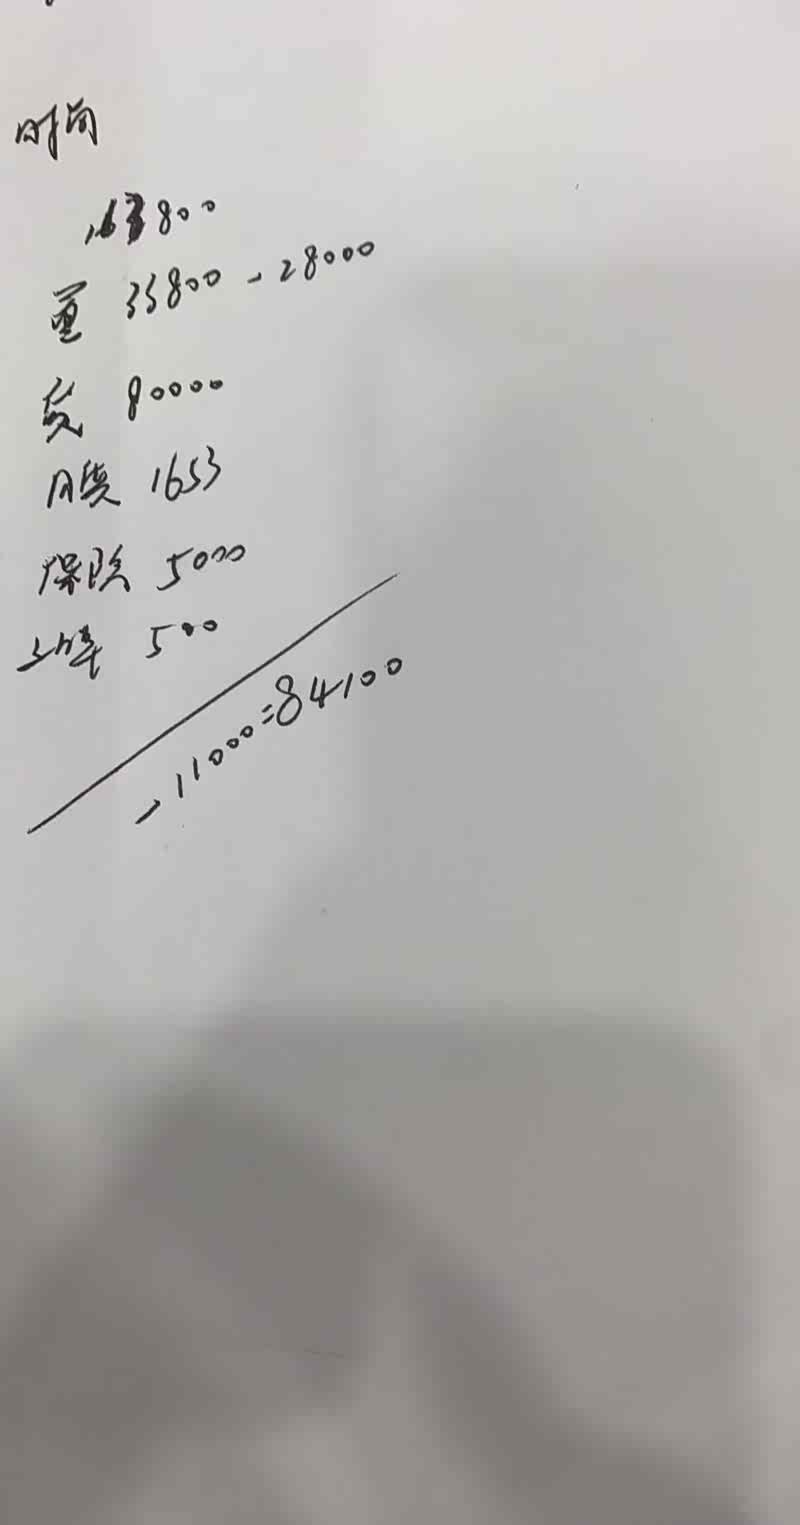 时间
163800
置 35800 - 28000
贷 80000
月供 1653
保险 5000
上牌 500
- 11000 = 84100